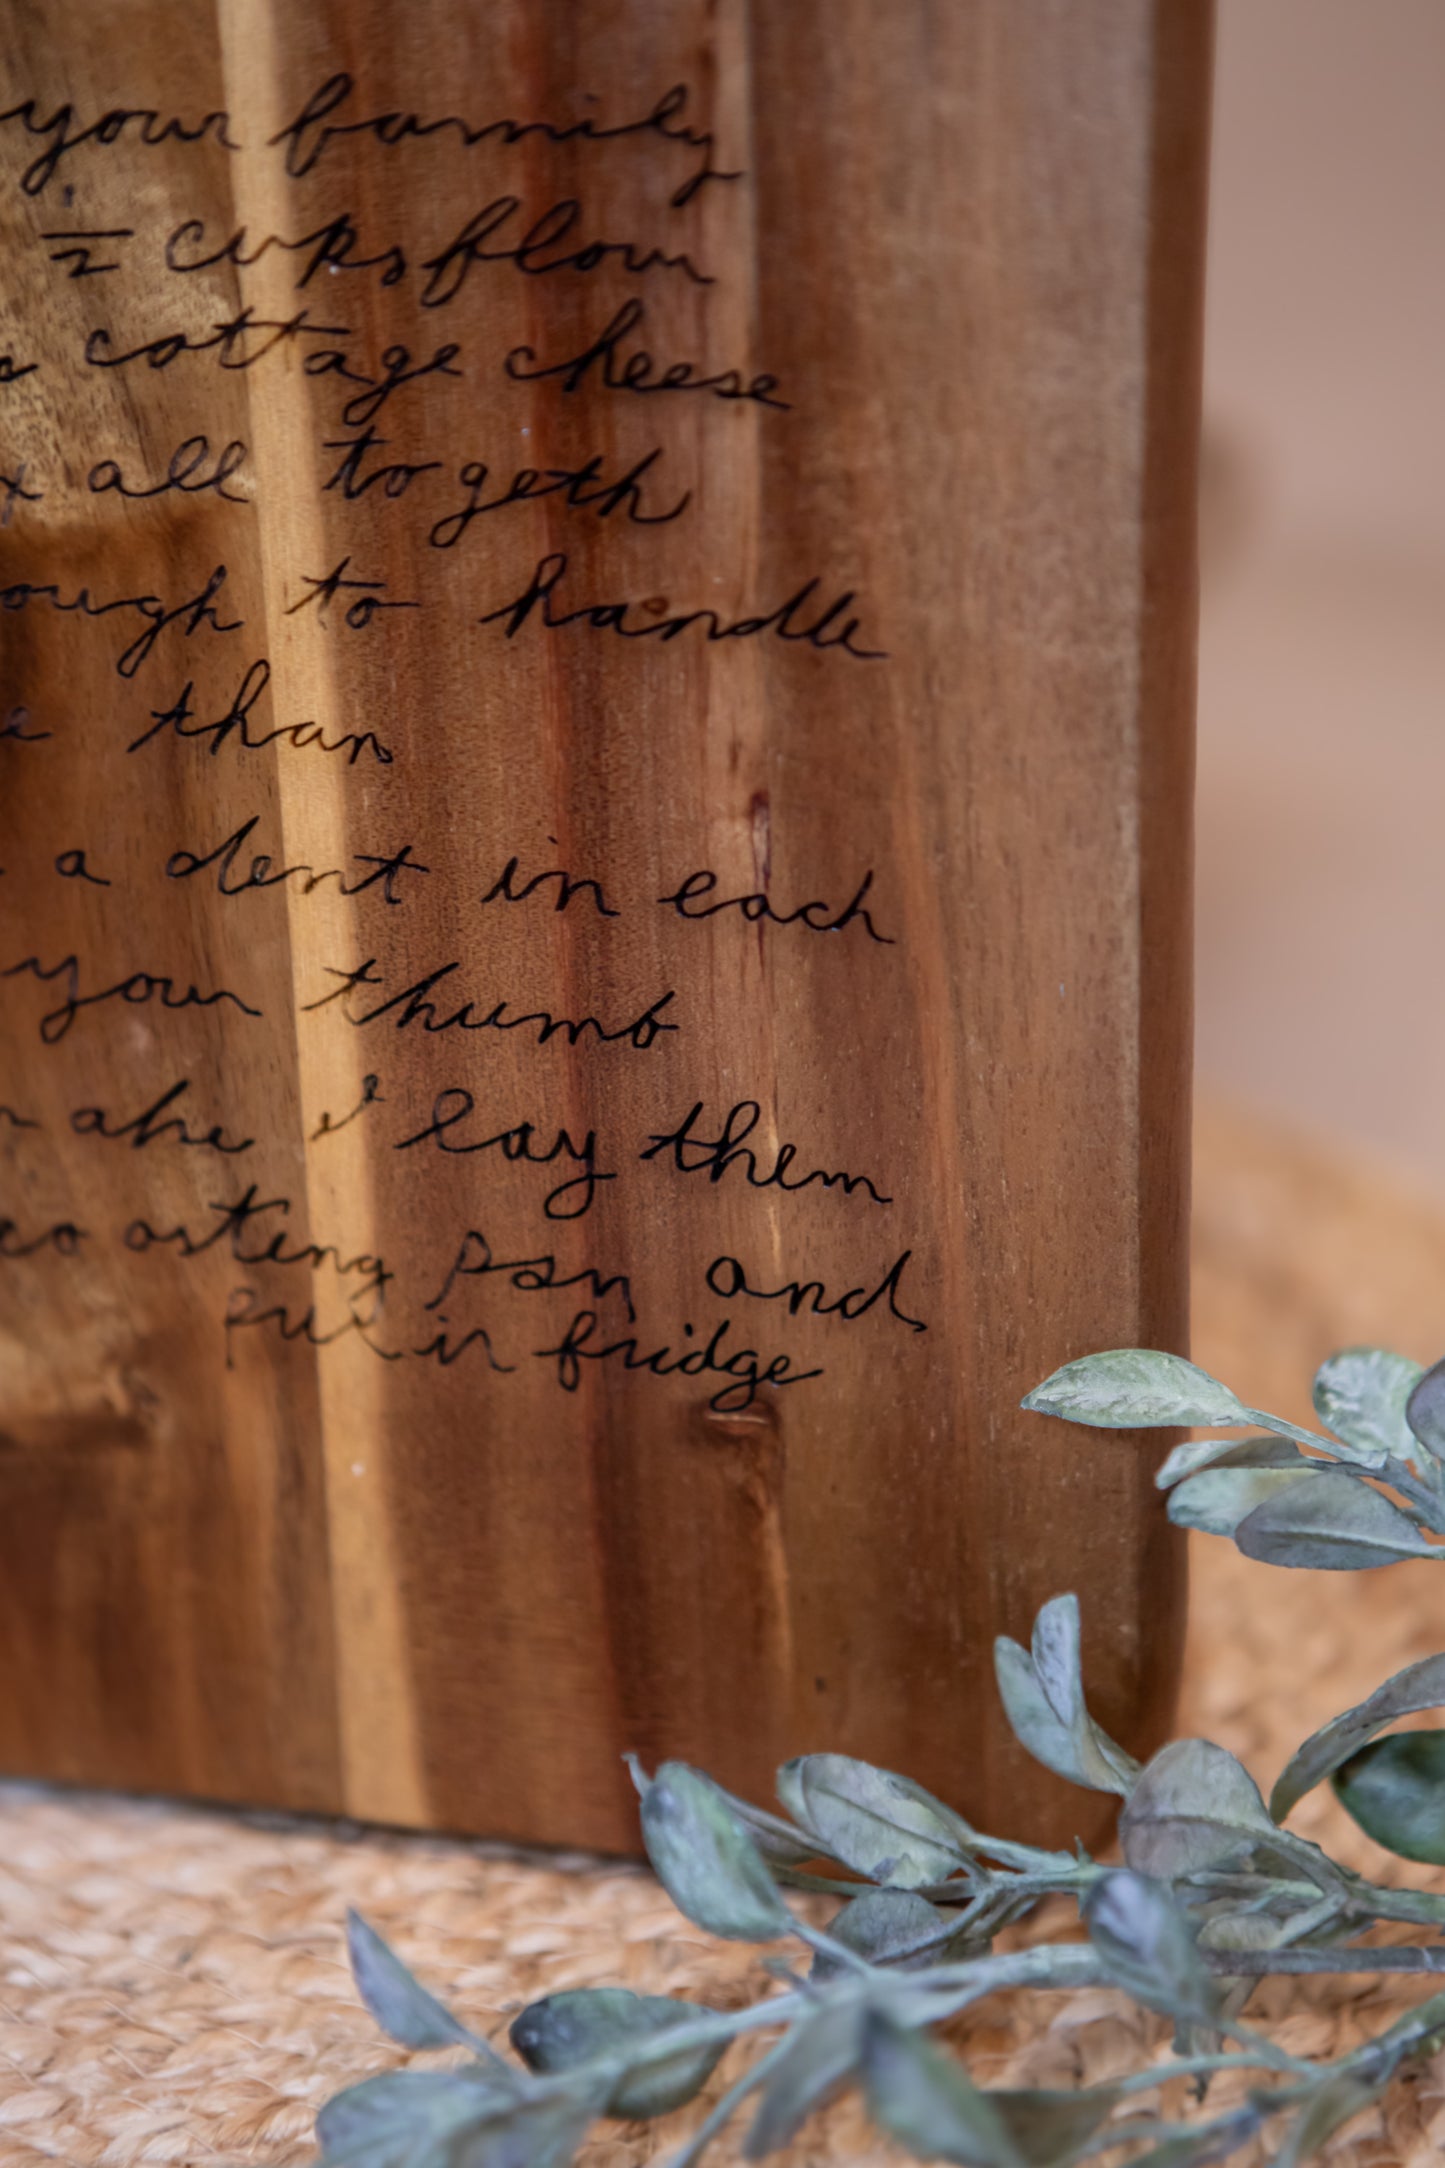 your family
1/2 cups flour
cottage cheese
all togeth
ough to handle
than
a dent in each
your thumb
I lay them
oasting pan and
put in fridge